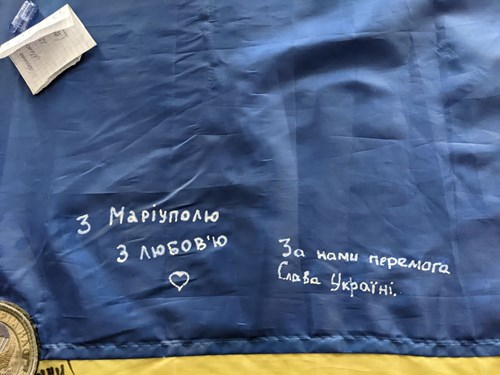 З Маріуполю
З ЛЮБОВ'Ю
За нами перемога
Слава Україні.